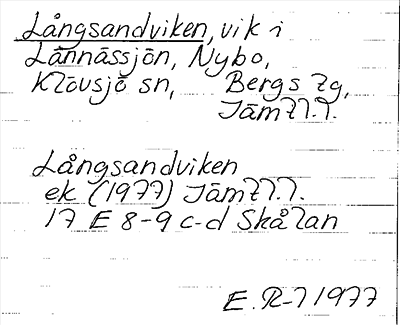 Långsandviken, vik i
Lännässjön, Nybo,
Klövsjö sn, Bergs tg,
Jämtl.l.
Långsandviken
ek (1977) Jämtl.l.
17 E 8-9 c-d Skålan
E. R-l 1977